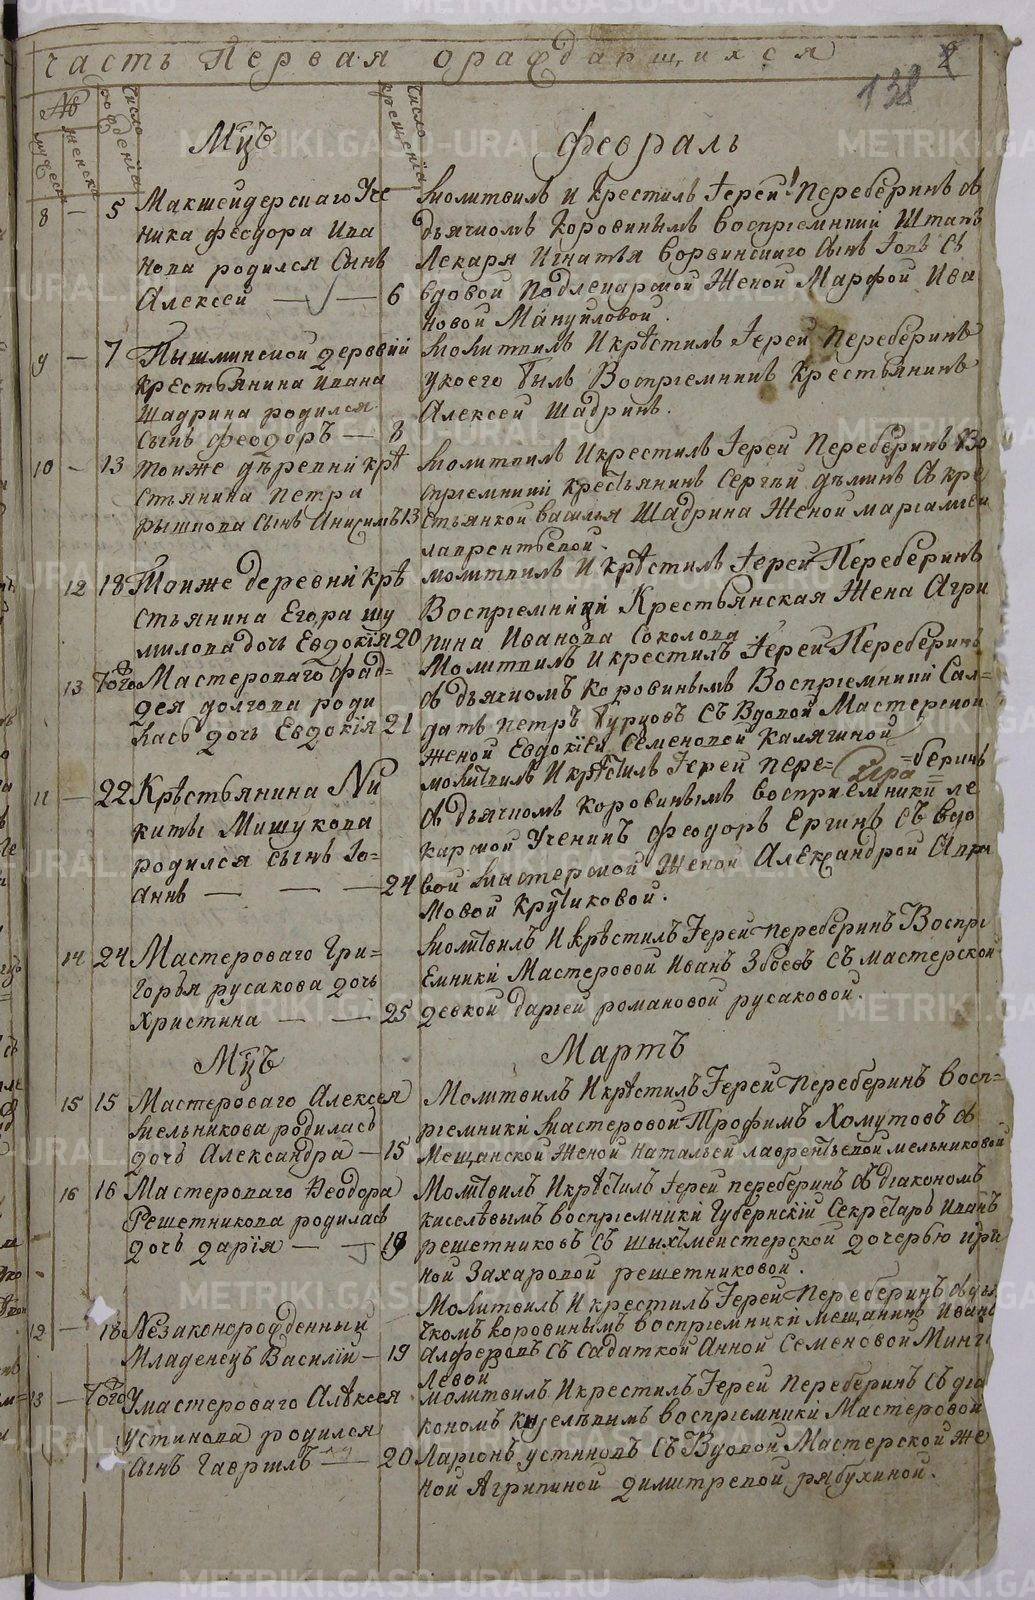 часть Первая ораждающихся
138
№
мужеск
женска
число рождения
число крещения
Мцъ
февраль
8 — 5 Макшейдерскаго Уче
ника феодора Ива
нова родился Сынъ
Алексей — 6
Молитвилъ и крестилъ Iерей Переберинъ съ
дьячкомъ Коровинымъ воспрiемники Штапъ
Лекаря Игнатья
Сынъ
Съ
вдовой Подлекарской Женой Марфой Ива
новой Мануйловой.
9 — 7 Пышминской деревни
крестьянина Ивана
Шадрина родился
сынъ феодоръ — 8
Молитвилъ И крѣстилъ Iерей Переберинъ
укоего былъ Воспрiемникъ Крестьянинъ
Алексей Шадринъ.
10 — 13 тоиже дѣревни крѣ
стьянина Петра
Сынъ Анисимъ 13
Молитвилъ И крестилъ Iерей Переберинъ Во
спрiемники крестьянинъ Сергѣй Дѣминъ Съ кре
стьянкой Василья Шадрина Женой
лаврентьевой.
12 18 Тоиже деревни крѣ
стьянина Егора шу
милова дочь Евдокiя 20
молитвилъ И крѣстилъ Iерей Переберинъ
Воспрiемницi Крестьянская Жена Агри
пина Иванова Соколова
13 Того Мастероваго фад-
дея долгова роди
лась дочь Евдокiя 21
Молитвилъ и крестилъ Iерей Переберинъ
съ дьячкомъ Коровинымъ Воспрiемники Сал-
датъ петръ Бурцовъ Съ Вдовой Мастерской
женой Евдокiей Семеновой Калягиной
11 — 22 Крѣстьянина Ни
киты Мишукова
родился сынъ Iо-
аннъ — — — 24
молитвилъ И крѣстилъ Iерей пере-беринъ
съ дьячкомъ коровинымъ восприемники ле
карской Ученикъ феодоръ Ергинъ Съ вдо
вой мастерской Женой Александрой
мовой Крутиковой.
14 24 Мастероваго Гри-
горья русакова дочь
Христина — — 25
Молитвилъ И крѣстилъ Iерей переберинъ Воспрi
емники Мастеровой Иванъ Збоевъ Съ мастерской
девкой дарьей романовой русаковой.
Мцъ
Мартъ
15 15 Мастероваго Алексея
мельникова родилась
дочь Александра — 15
Молитвилъ И крѣстилъ Iерей Переберинъ восп-
рiемники мастеровой Трофимъ Хомутовъ съ
Мещанской Женой Натальей лаврентьевой мельниковой
16 16 Мастероваго Феодора
Решетникова родилась
дочь дарiя —
Молитвилъ И крѣстилъ Iерей переберинъ съ дiакономъ
киселѣвымъ воспрiемники Губернскiй Секретарь Иванъ
решетниковъ Съ шыхтмейстерской дочерью ири
ной Захаровой решетниковой.
12 — 18 Незаконорожденный
Младенецъ Василiй — 19
Молитвилъ И крестилъ Iерей Переберинъ съ дья
чкомъ коровинымъ воспрiемники мещанинъ Иванъ
Алферовъ Съ Садаткой Анной Семеновой
левой
13 — Того У мастероваго Алѣксея
устинова родился
сынъ Гаврiилъ — 20
Молитвилъ И крестилъ Iерей Переберинъ Съ дiа
кономъ киселѣвымъ воспрiемники Мастеровой
Ларiонъ устиновъ Съ Вдовой Мастерской же
ной Агрипиной димитревой рябухиной.
METRIKI.GASO-URAL.RU